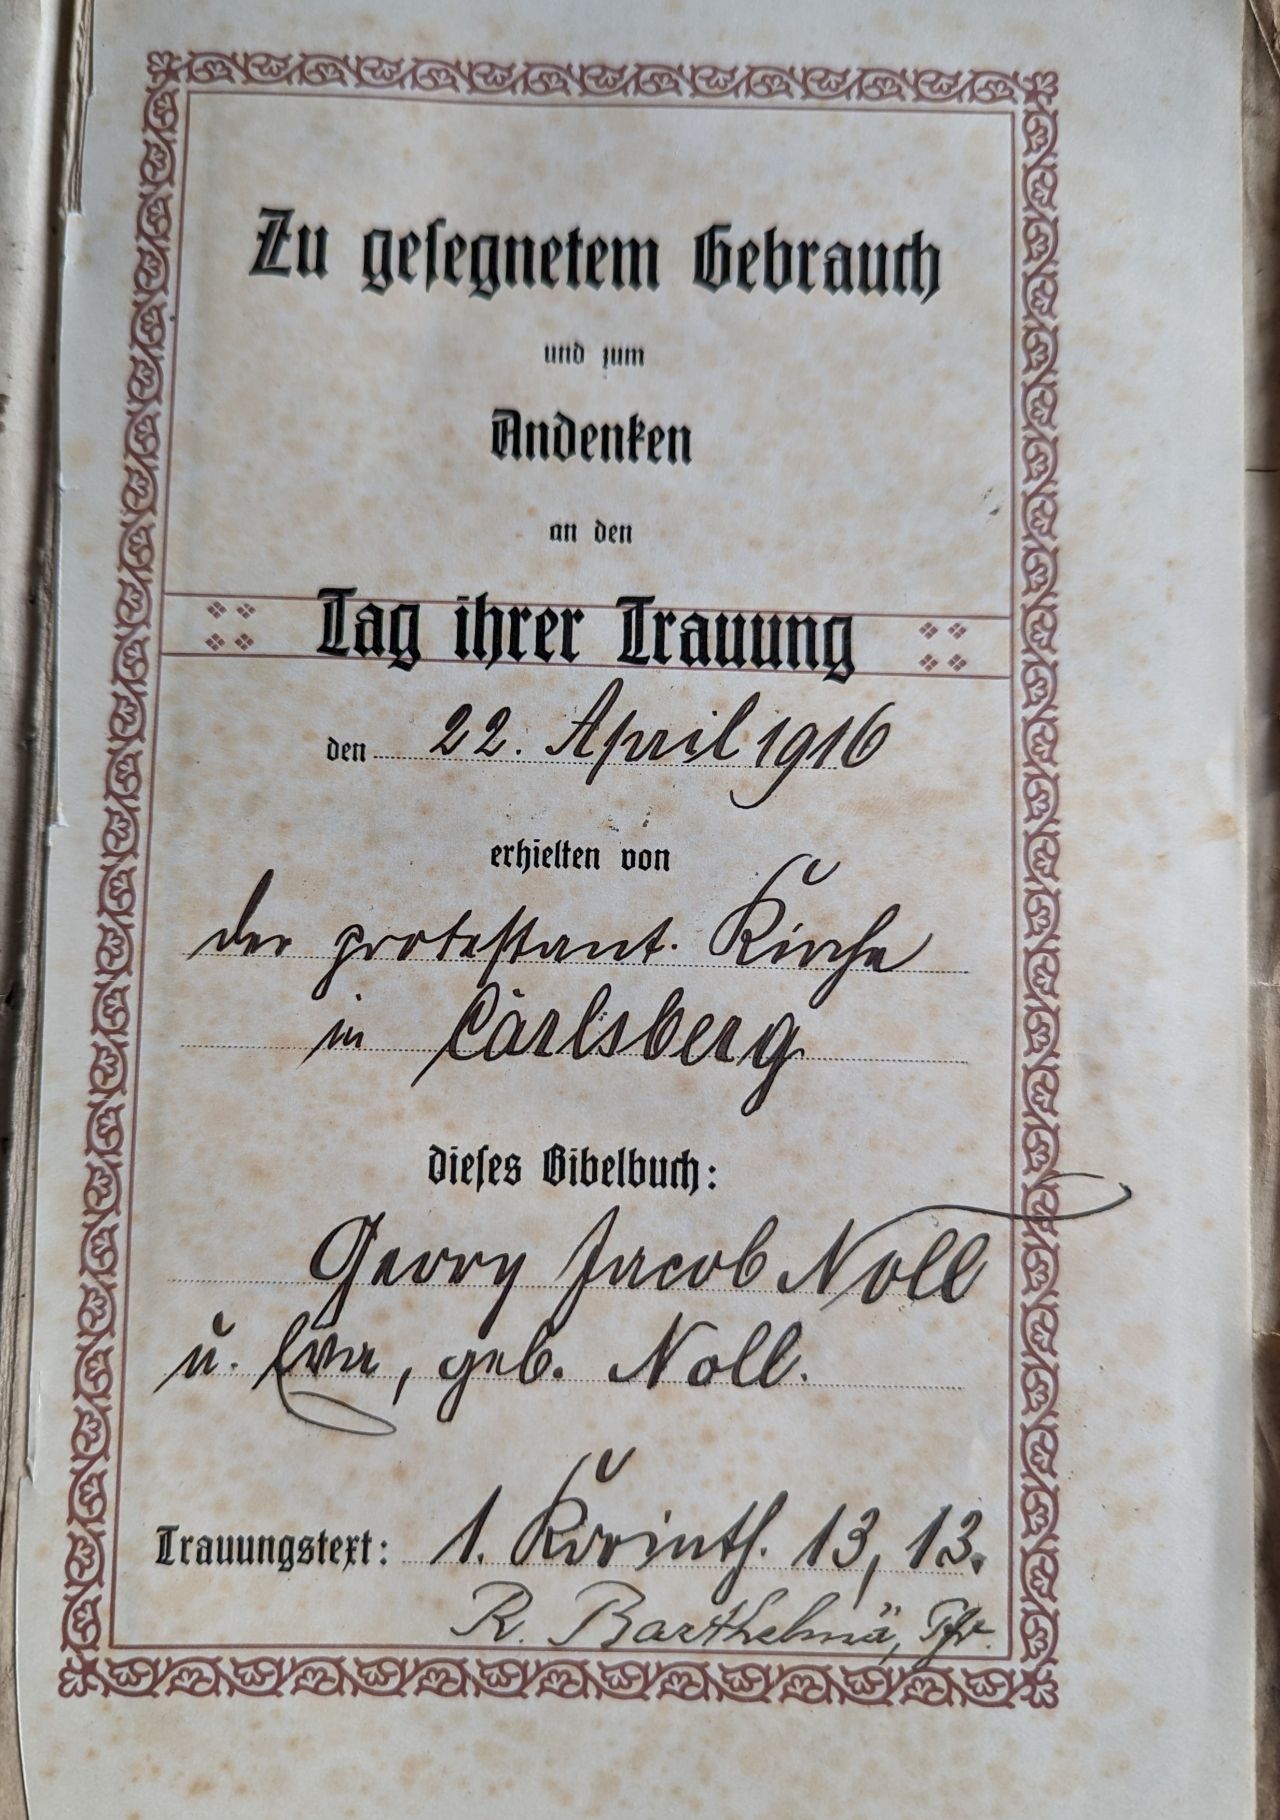 Zu gesegnetem Gebrauch
und zum
Andenken
an den
Tag ihrer Trauung
den 22. April 1916
erhielten von
der protestant. Kirche
in Carlsberg
dieses Bibelbuch:
Georg Jacob Noll
u. Eva, geb. Noll.
Trauungstext: 1. Korinth. 13, 13.
R. Barthelmä, Pfr.